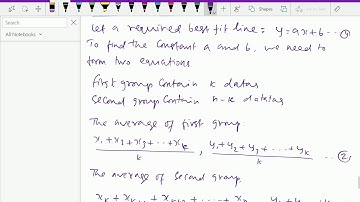 Search
All Notebooks
Let a required best fit line: y=ax+b --①
To find the constant a and b, we need to
form two equations
first group contain k datas
second group contain n-k datatas
The average of first group.
x₁+x₂+x₃+--+xₖ / k , y₁+y₂+y₃+...+yₖ / k --- ②
The average of second group.